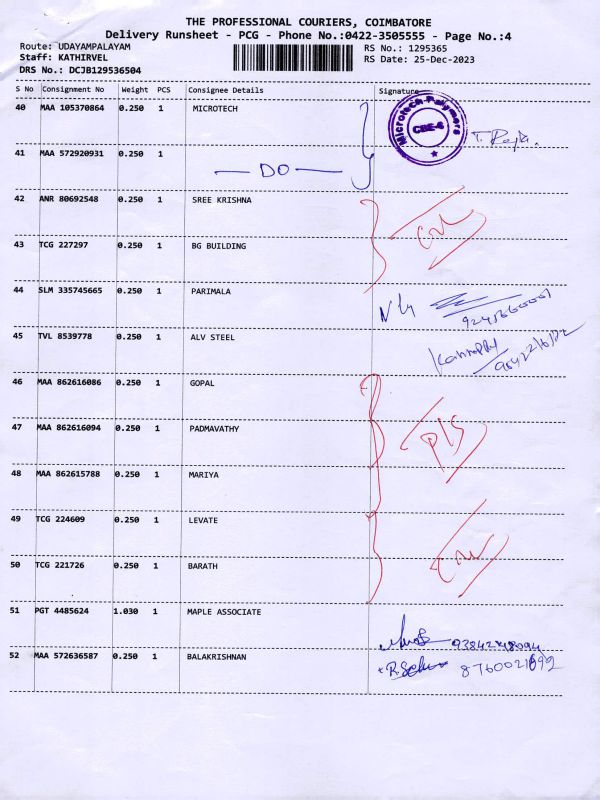 THE PROFESSIONAL COURIERS, COIMBATORE
Delivery Runsheet - PCG - Phone No.:0422-3505555 - Page No.:4
Route: UDAYAMPALAYAM RS No.: 1295365
Staff: KATHIRVEL RS Date: 25-Dec-2023
DRS No.: DCJB129536504
S No Consignment No Weight PCS Consignee Details Signature
40 MAA 105370864 0.250 1 MICROTECH
Microtech Polymers CBE-6
41 MAA 572920931 0.250 1
— DO —
42 ANR 80692548 0.250 1 SREE KRISHNA
43 TCG 227297 0.250 1 BG BUILDING
44 SLM 335745665 0.250 1 PARIMALA
45 TVL 8539778 0.250 1 ALV STEEL
46 MAA 862616086 0.250 1 GOPAL
47 MAA 862616094 0.250 1 PADMAVATHY
P/S
48 MAA 862615788 0.250 1 MARIYA
49 TCG 224609 0.250 1 LEVATE
50 TCG 221726 0.250 1 BARATH
51 PGT 4485624 1.030 1 MAPLE ASSOCIATE
9384248094
52 MAA 572636587 0.250 1 BALAKRISHNAN